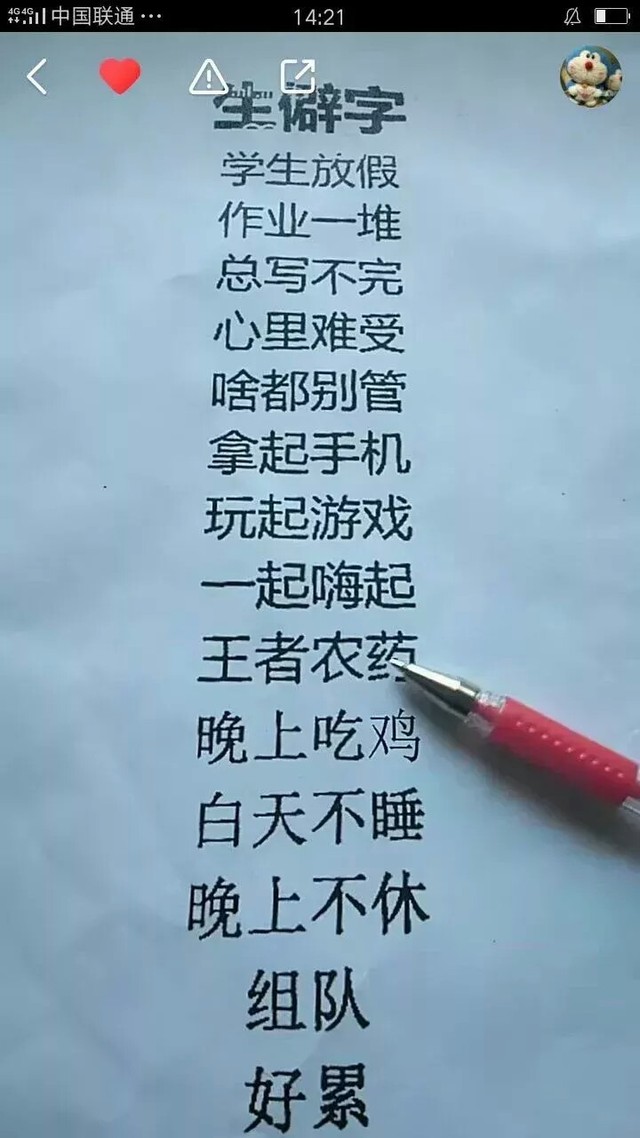 4G 4G 中国联通 ··· 14:21
生僻字
学生放假
作业一堆
总写不完
心里难受
啥都别管
拿起手机
玩起游戏
一起嗨起
王者农药
晚上吃鸡
白天不睡
晚上不休
组队
好累